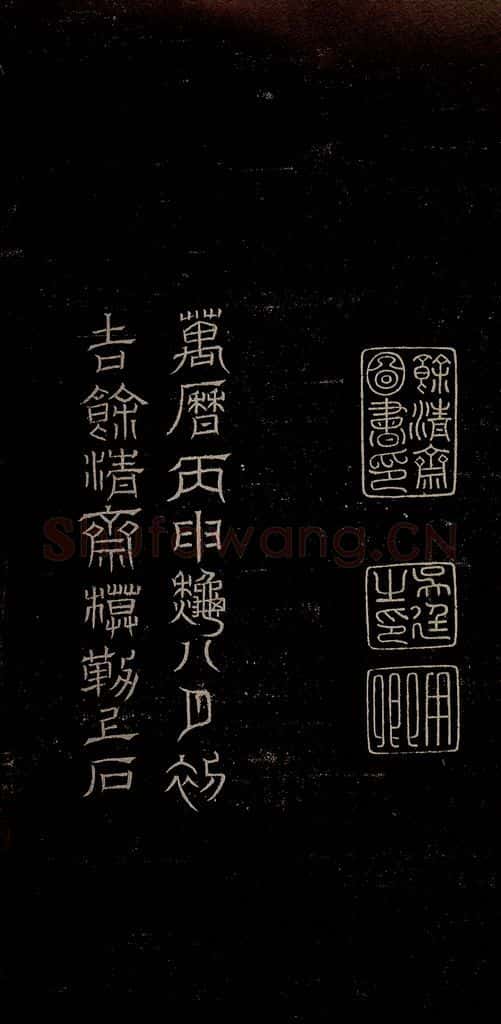 餘清齋
圖書印
吳廷
之印
用卿
萬曆丙申龝八月初
吉餘清齋模勒上石
Shufawang.CN